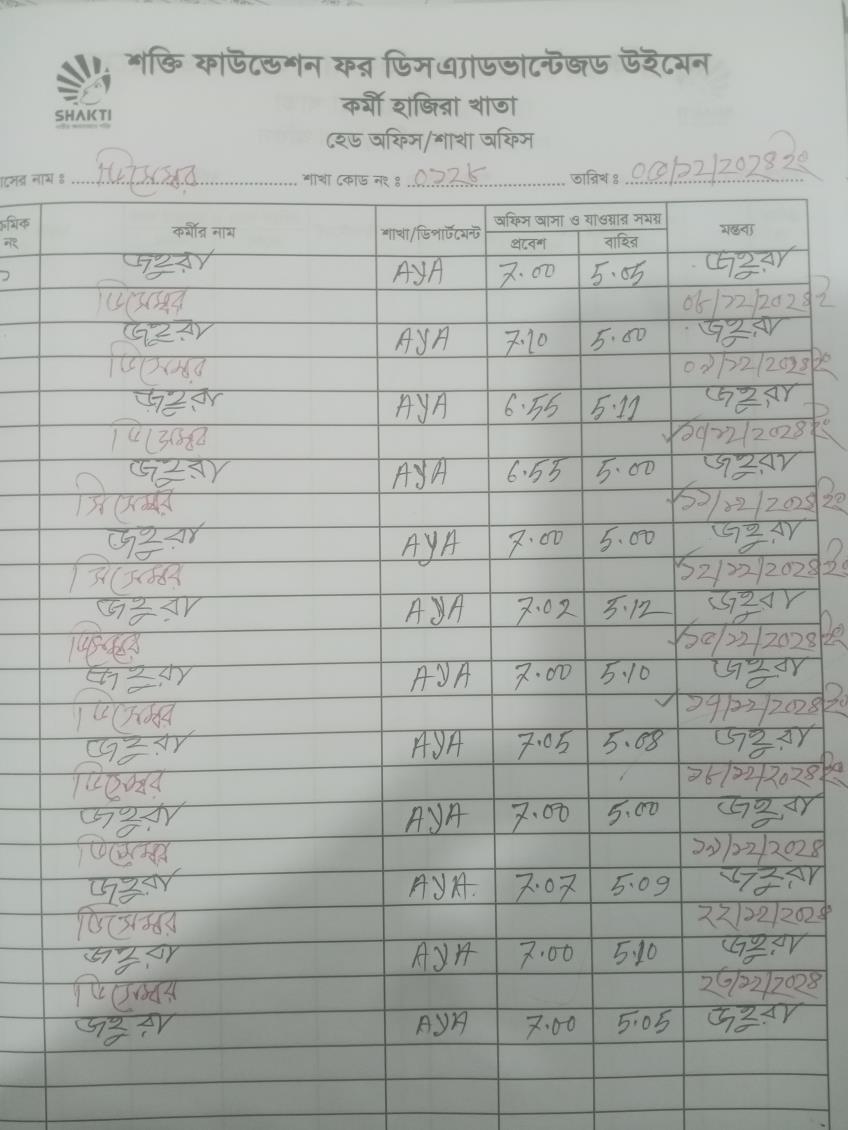 শক্তি ফাউন্ডেশন ফর ডিসএ্যাডভান্টেজড উইমেন
SHAKTI
কর্মী হাজিরা খাতা
হেড অফিস/শাখা অফিস
াসের নাম : ডিসেম্বর শাখা কোড নং : ০১২৮ তারিখ : /১২/২০২৪ ইং
ক্রমিক নং কর্মীর নাম শাখা/ডিপার্টমেন্ট অফিস আসা ও যাওয়ার সময় মন্তব্য
প্রবেশ বাহির
জহুরা AYA 7.00 5.05 জহুরা
ডিসেম্বর ০৮/১২/২০২৪ ই
জহুরা AYA 7.10 5.00 জহুরা
ডিসেম্বর ০৯/১২/২০২৪ ইং
জহুরা AYA 6.55 5.11 জহুরা
ডিসেম্বর ১০/১২/২০২৪ ইং
জহুরা AYA 6.55 5.00 জহুরা
ডিসেম্বর ১১/১২/২০২৪ ইং
জহুরা AYA 7.00 5.00 জহুরা
ডিসেম্বর ১২/১২/২০২৪ ইং
জহুরা AYA 7.02 5.12 জহুরা
ডিসেম্বর ১৫/১২/২০২৪ ইং
জহুরা AYA 7.00 5.10 জহুরা
ডিসেম্বর ১৭/১২/২০২৪ ইং
জহুরা AYA 7.05 5.08 জহুরা
ডিসেম্বর ১৮/১২/২০২৪ ইং
জহুরা AYA 7.00 5.00 জহুরা
ডিসেম্বর ১৯/১২/২০২৪
জহুরা AYA 7.07 5.09 জহুরা
ডিসেম্বর ২২/১২/২০২৪
জহুরা AYA 7.00 5.10 জহুরা
ডিসেম্বর ২৩/১২/২০২৪
জহুরা AYA 7.00 5.05 জহুরা